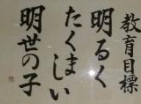 教育目標
明るく
たくましい
明世の子